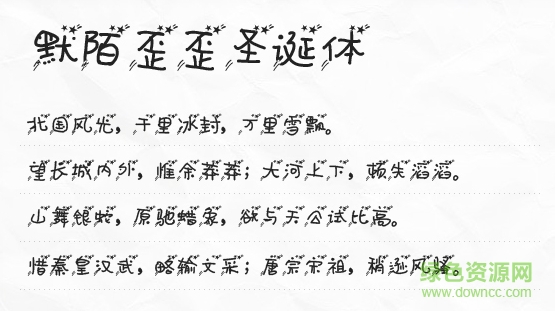 默陌歪歪圣诞体
北国风光，千里冰封，万里雪飘。
望长城内外，惟余莽莽；大河上下，顿失滔滔。
山舞银蛇，原驰蜡象，欲与天公试比高。
惜秦皇汉武，略输文采；唐宗宋祖，稍逊风骚。
绿色资源网
www.downcc.com